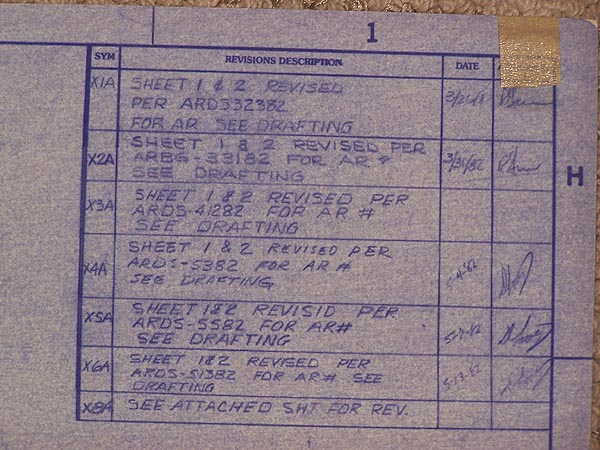 1
SYM REVISIONS DESCRIPTION DATE
X1A SHEET 1 & 2 REVISED
PER ARDS32382
FOR AR SEE DRAFTING
X2A SHEET 1 & 2 REVISED PER
33182 FOR AR # 3/31/82
SEE DRAFTING
H
X3A SHEET 1 & 2 REVISED PER
ARDS-41282 FOR AR #
SEE DRAFTING
X4A SHEET 1 & 2 REVISED PER
ARDS-5382 FOR AR # 5-4-82
SEE DRAFTING
X5A SHEET 1&2 REVISID PER
ARDS-5582 FOR AR# 5-7-82
SEE DRAFTING
X6A SHEET 1&2 REVISED PER
ARDS-51382 FOR AR# SEE 5-13-82
DRAFTING
X8A SEE ATTACHED SHT FOR REV.